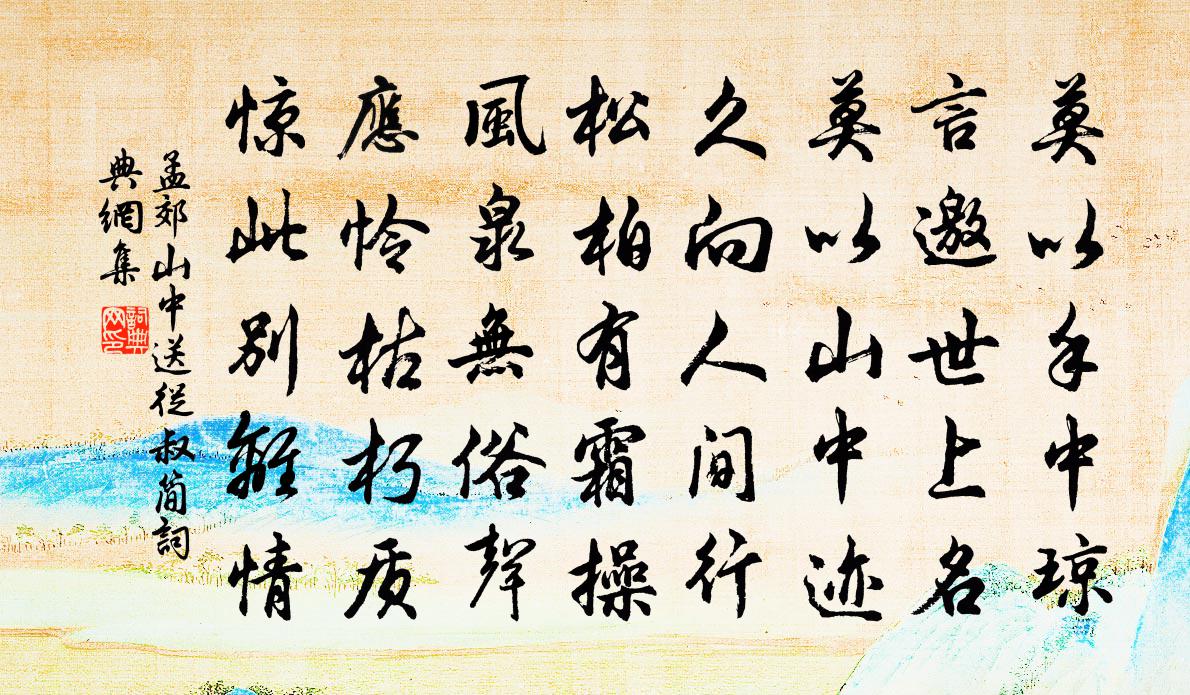 莫以手中琼
言邀世上名
莫以山中迹
久向人间行
松柏有霜操
風泉無俗聲
應怜枯朽质
惊此別離情
孟郊山中送從叔简詞
典網集
詞典网印